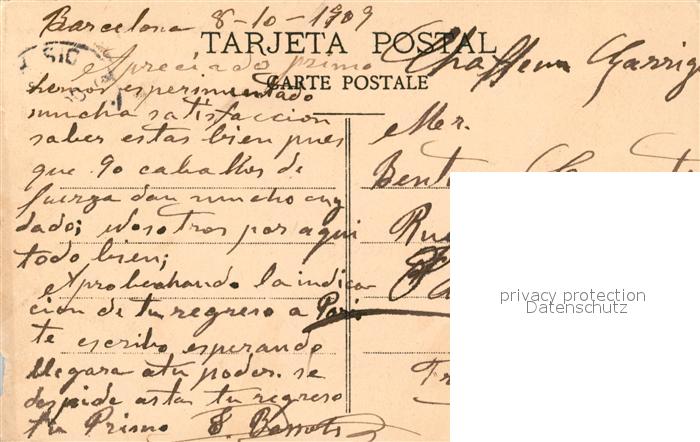 Barcelona 8-10-1909
TARJETA POSTAL
CARTE POSTALE
Apreciado primo
hemos esperimentado
mucha satisfaccion
saber estas bien pues
que 90 caballos de
fuerza dan mucho cuy
dado; Nosotros por aqui
todo bien;
Aprobechando la indica
cion de tu regreso a Paris
te escribo esperando
llegara a tu poder. se
despide asta tu regreso
tu Primo E.
Mr.
privacy protection
Datenschutz